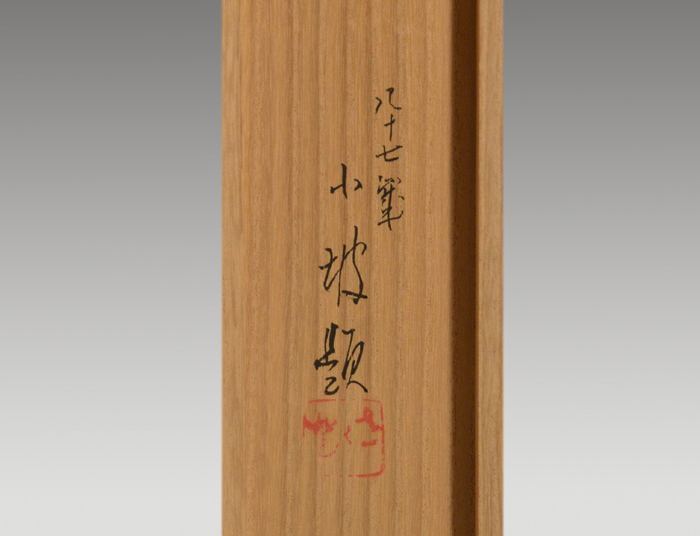 八十七歳
小坡題